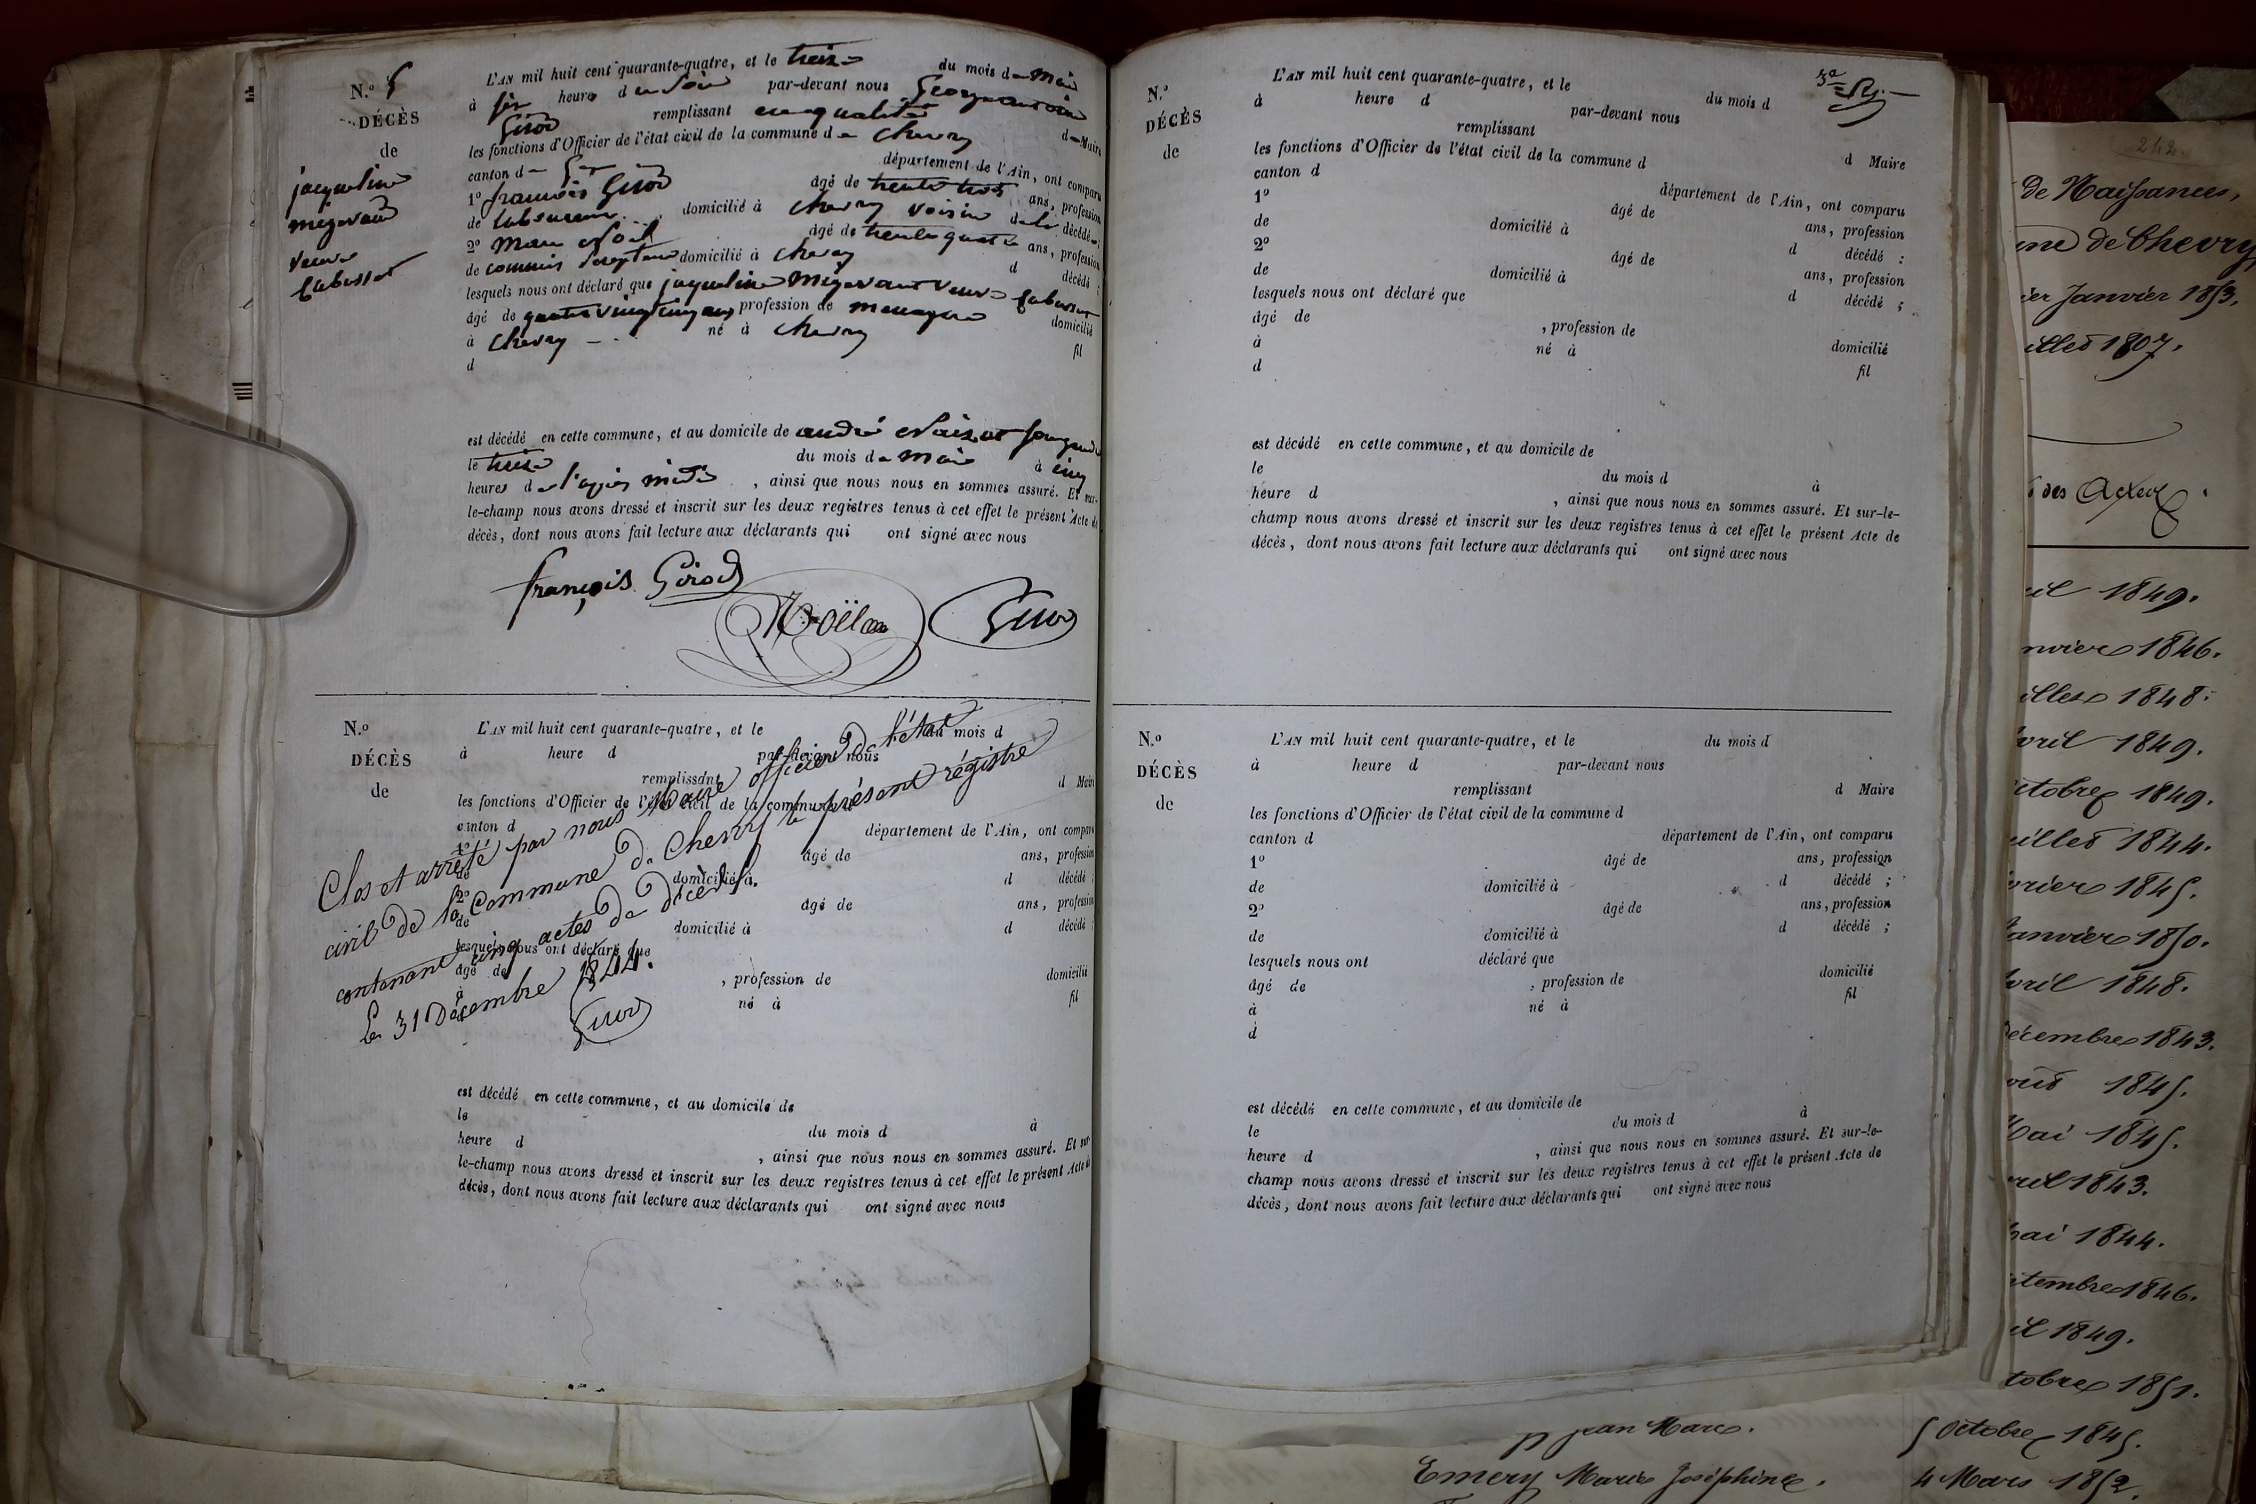 N.o 5
DÉCÈS
de
jacqueline
mégevand
veuve
Cabussat
L'AN mil huit cent quarante-quatre, et le treize du mois de Mai
à six heures du Soir par-devant nous George antoine
Girod remplissant en qualité de Maire
les fonctions d'Officier de l'état civil de la commune de Chevry
canton de Gex département de l'Ain, ont comparu
1o françois Girod âgé de trente trois ans, profession
de laboureur domicilié à Chevry voisin de la décédée;
2o Marc Noël âgé de trente quatre ans, profession
de commis domicilié à Chevry d décédé;
lesquels nous ont déclaré que jaqueline Mégevant veuve Cabussat
âgé de quatre vingt cinq ans profession de menagere domicilié
à Chevry né à Chevry fil
d
est décédé en cette commune, et au domicile de andré
le treize du mois de Mai à cinq
heures de l'après midi, ainsi que nous nous en sommes assuré. Et sur-
le-champ nous avons dressé et inscrit sur les deux registres tenus à cet effet le présent Acte de
décès, dont nous avons fait lecture aux déclarants qui ont signé avec nous
françois Girod
Noël
Girod
N.o
DÉCÈS
de
L'AN mil huit cent quarante-quatre, et le du mois d
à heure d par-devant nous
remplissant d Maire
les fonctions d'Officier de l'état civil de la commune d
canton d département de l'Ain, ont comparu
1o âgé de ans, profession
de domicilié à d décédé;
2o âgé de ans, profession
de domicilié à d décédé;
lesquels nous ont déclaré que
âgé de , profession de domicilié
à né à fil
d
Clos et arrêté par nous Maire officier de l'état
civil de la Commune de Chevry le présent régistre
contenant cinq actes de décès.
Le 31 Décembre 1844.
Girod
est décédé en cette commune, et au domicile de
le du mois d à
heure d , ainsi que nous nous en sommes assuré. Et sur-
le-champ nous avons dressé et inscrit sur les deux registres tenus à cet effet le présent Acte de
décès, dont nous avons fait lecture aux déclarants qui ont signé avec nous
N.o
DÉCÈS
de
L'AN mil huit cent quarante-quatre, et le du mois d
à heure d par-devant nous
remplissant d Maire
les fonctions d'Officier de l'état civil de la commune d
canton d département de l'Ain, ont comparu
1o âgé de ans, profession
de domicilié à d décédé :
2o âgé de ans, profession
de domicilié à d décédé ;
lesquels nous ont déclaré que
âgé de , profession de domicilié
à né à fil
d
est décédé en cette commune, et au domicile de
le du mois d à
heure d , ainsi que nous nous en sommes assuré. Et sur-le-
champ nous avons dressé et inscrit sur les deux registres tenus à cet effet le présent Acte de
décès, dont nous avons fait lecture aux déclarants qui ont signé avec nous
N.o
DÉCÈS
de
L'AN mil huit cent quarante-quatre, et le du mois d
à heure d par-devant nous
remplissant d Maire
les fonctions d'Officier de l'état civil de la commune d
canton d département de l'Ain, ont comparu
1o âgé de ans, profession
de domicilié à d décédé ;
2o âgé de ans, profession
de domicilié à d décédé ;
lesquels nous ont déclaré que
âgé de , profession de domicilié
à né à fil
d
est décédé en cette commune, et au domicile de
le du mois d à
heure d , ainsi que nous nous en sommes assuré. Et sur-le-
champ nous avons dressé et inscrit sur les deux registres tenus à cet effet le présent Acte de
décès, dont nous avons fait lecture aux déclarants qui ont signé avec nous
242
de Naissances,
de Chevry
Janvier 1853.
1807.
des Actes
1849.
1846.
1848.
1849.
1849.
1844.
1845.
Janvier 1850.
1848.
1843.
1845.
Mai 1845.
1843.
1844.
1846.
1849.
1851.
Jean Marc. 5 Octobre 1845.
Emery Marie Joséphine. 4 Mars 1852.